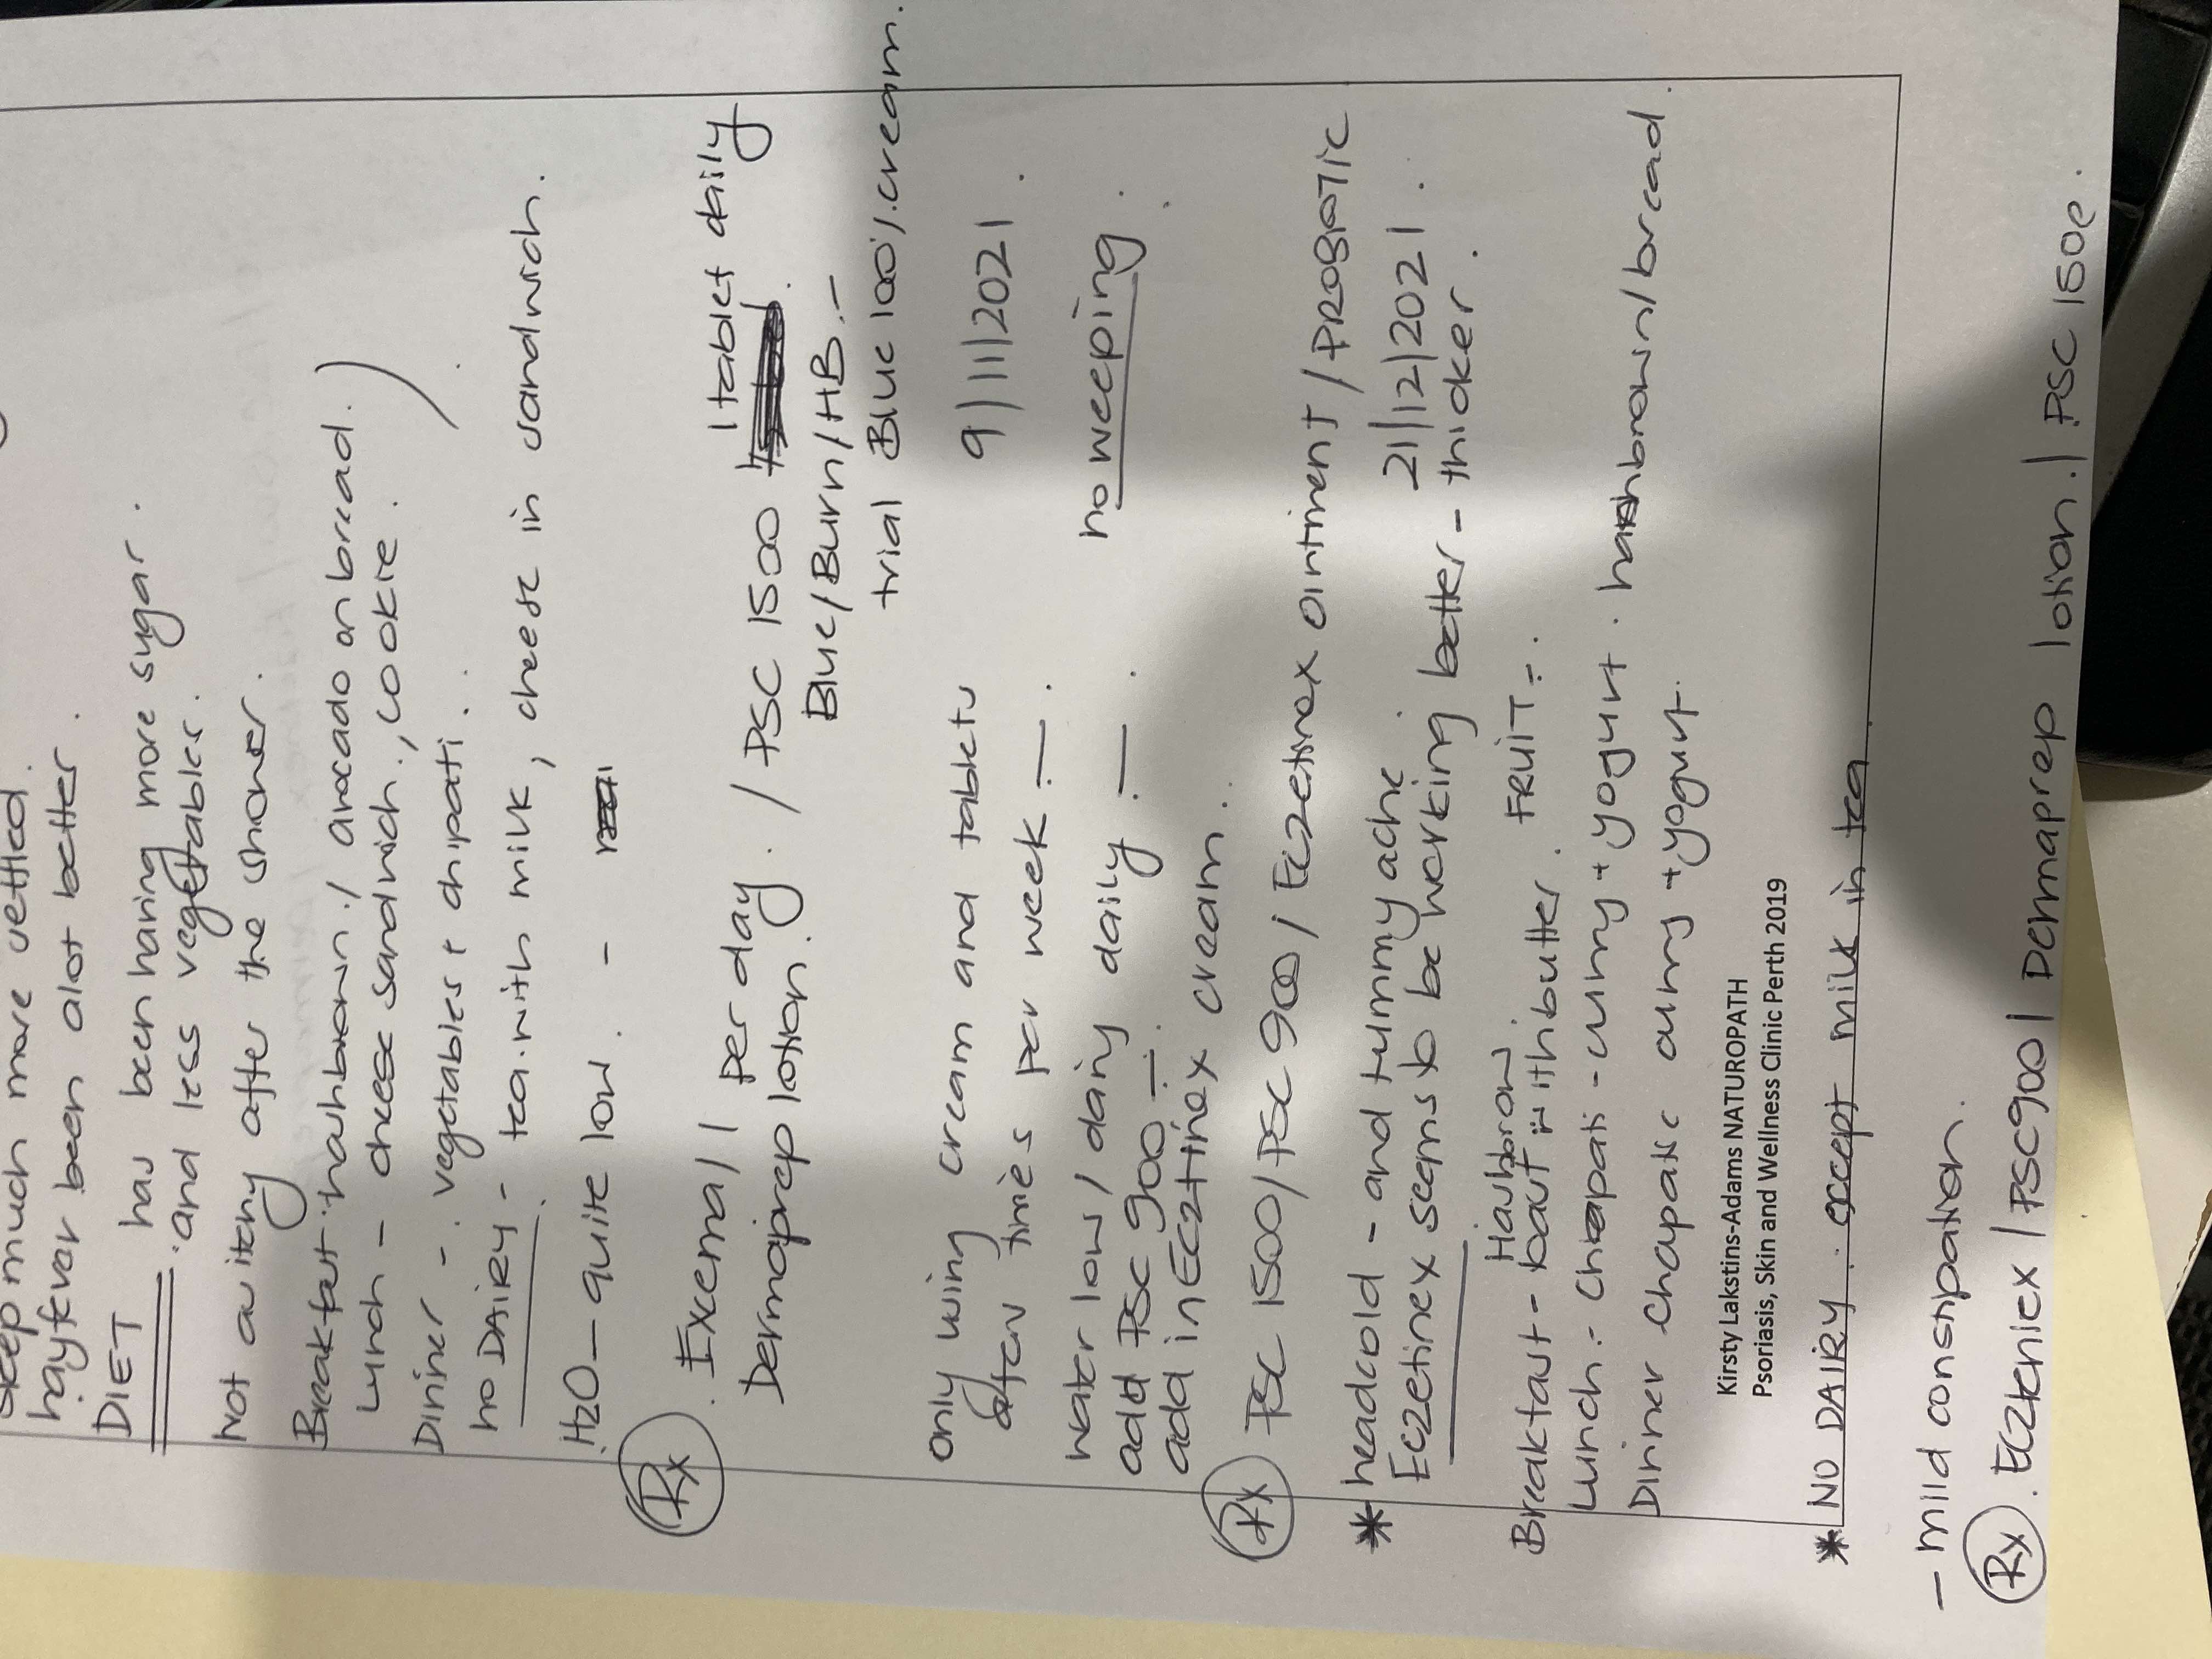 sleep much more settled.
hayfever been alot better.
DIET has been having more sugar.
and less vegetables.
Not as itchy after the shower.
Breakfast hashbrown / avocado on bread.)
Lunch - cheese sandwich, cookie.
Dinner - vegetables + chipati.
no DAIRY - tea with milk, cheese in sandwich.
H2O - quite low. -
Rx . Excema / 1 per day. / PSC 1500 1 tablet daily
Dermaprep lotion. Blue/Burn/HB.-
trial Blue 100% cream.
9/11/2021.
only using cream and tablets
often times per week -.
water low / dairy daily -. no weeping.
add PSC 900 -.
add in Eczetinex cream.
Rx PSC 1500/PSC 900/ Eczetinex ointment / PROBIOTIC
21/12/2021.
* headcold - and tummy ache.
Eczetinex seems to be working better - thicker.
Hashbrown.
Breakfast - toast with butter. FRUIT -.
Lunch - chapati - curry + yogurt. hashbrown/bread.
Dinner chapatic curry + yogurt.
Kirsty Lakstins-Adams NATUROPATH
Psoriasis, Skin and Wellness Clinic Perth 2019
* NO DAIRY. except milk in tea
- mild constipation.
Rx. Eczteniex / PSC900 / Dermaprep lotion. / PSC 1500.